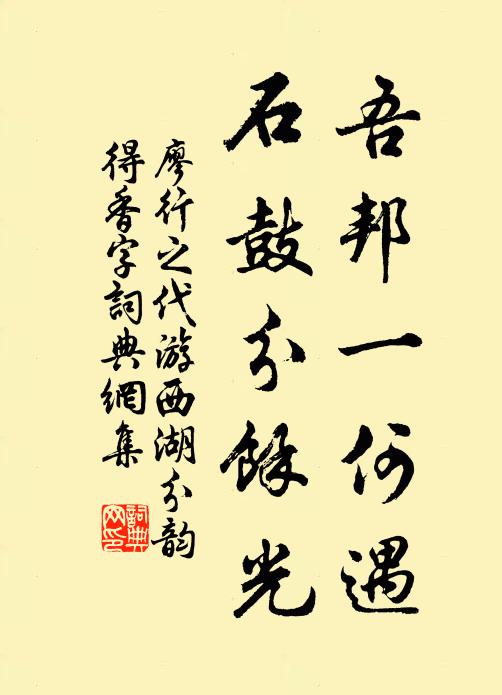 吾邦一何遇
石鼓分餘光
廖行之代游西湖分韵
得香字詞典網集
詞典网印